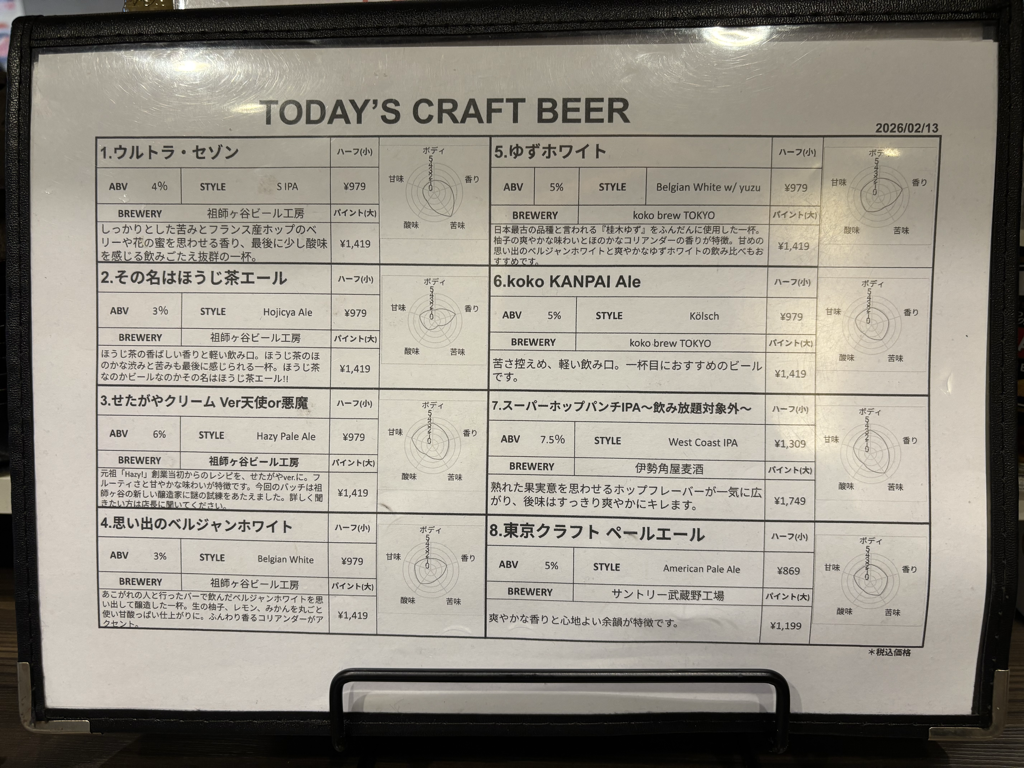 TODAY'S CRAFT BEER
2026/02/13
1.ウルトラ・セゾン
ハーフ(小)
ABV 4% STYLE S IPA
¥979
BREWERY 祖師ヶ谷ビール工房
パイント(大)
しっかりとした苦みとフランス産ホップのベ
リーや花の蜜を思わせる香り、最後に少し酸味
を感じる飲みごたえ抜群の一杯。
¥1,419
ボディ
甘味
香り
酸味
苦味
5
4
3
2
1
0
2.その名はほうじ茶エール
ハーフ(小)
ABV 3% STYLE Hojicya Ale
¥979
BREWERY 祖師ヶ谷ビール工房
パイント(大)
ほうじ茶の香ばしい香りと軽い飲み口。ほうじ茶のほ
のかな渋みと苦みも最後に感じられる一杯。ほうじ茶
なのかビールなのかその名はほうじ茶エール!!
¥1,419
ボディ
甘味
香り
酸味
苦味
5
4
3
2
1
0
3.せたがやクリーム Ver天使or悪魔
ハーフ(小)
ABV 6% STYLE Hazy Pale Ale
¥979
BREWERY 祖師ヶ谷ビール工房
パイント(大)
元祖「Hazy!」創業当初からのレシピを、せたがやver.に。フ
ルーティさと甘やかな味わいが特徴です。今回のバッチは祖
師ヶ谷の新しい醸造家に謎の試練をあたえました。詳しく聞
きたい方は店長に聞いてください。
¥1,419
ボディ
甘味
香り
酸味
苦味
5
4
3
2
1
0
4.思い出のベルジャンホワイト
ハーフ(小)
ABV 3% STYLE Belgian White
¥979
BREWERY 祖師ヶ谷ビール工房
パイント(大)
あこがれの人と行ったバーで飲んだベルジャンホワイトを思
い出して醸造した一杯。生の柚子、レモン、みかんを丸ごと
使い甘酸っぱい仕上がりに。ふんわり香るコリアンダーがア
クセント。
¥1,419
ボディ
甘味
香り
酸味
苦味
5
4
3
2
1
0
5.ゆずホワイト
ハーフ(小)
ABV 5% STYLE Belgian White w/ yuzu
¥979
BREWERY koko brew TOKYO
パイント(大)
日本最古の品種と言われる『桂木ゆず』をふんだんに使用した一杯。
柚子の爽やかな味わいとほのかなコリアンダーの香りが特徴。甘めの
思い出のベルジャンホワイトと爽やかなゆずホワイトの飲み比べもお
すすめです。
¥1,419
ボディ
甘味
香り
酸味
苦味
5
4
3
2
1
0
6.koko KANPAI Ale
ハーフ(小)
ABV 5% STYLE Kölsch
¥979
BREWERY koko brew TOKYO
パイント(大)
苦さ控えめ、軽い飲み口。一杯目におすすめのビール
です。
¥1,419
ボディ
甘味
香り
酸味
苦味
5
4
3
2
1
0
7.スーパーホップパンチIPA～飲み放題対象外～
ハーフ(小)
ABV 7.5% STYLE West Coast IPA
¥1,309
BREWERY 伊勢角屋麦酒
パイント(大)
熟れた果実意を思わせるホップフレーバーが一気に広
がり、後味はすっきり爽やかにキレます。
¥1,749
ボディ
甘味
香り
酸味
苦味
5
4
3
2
1
0
8.東京クラフト ペールエール
ハーフ(小)
ABV 5% STYLE American Pale Ale
¥869
BREWERY サントリー武蔵野工場
パイント(大)
爽やかな香りと心地よい余韻が特徴です。
¥1,199
ボディ
甘味
香り
酸味
苦味
5
4
3
2
1
0
＊税込価格